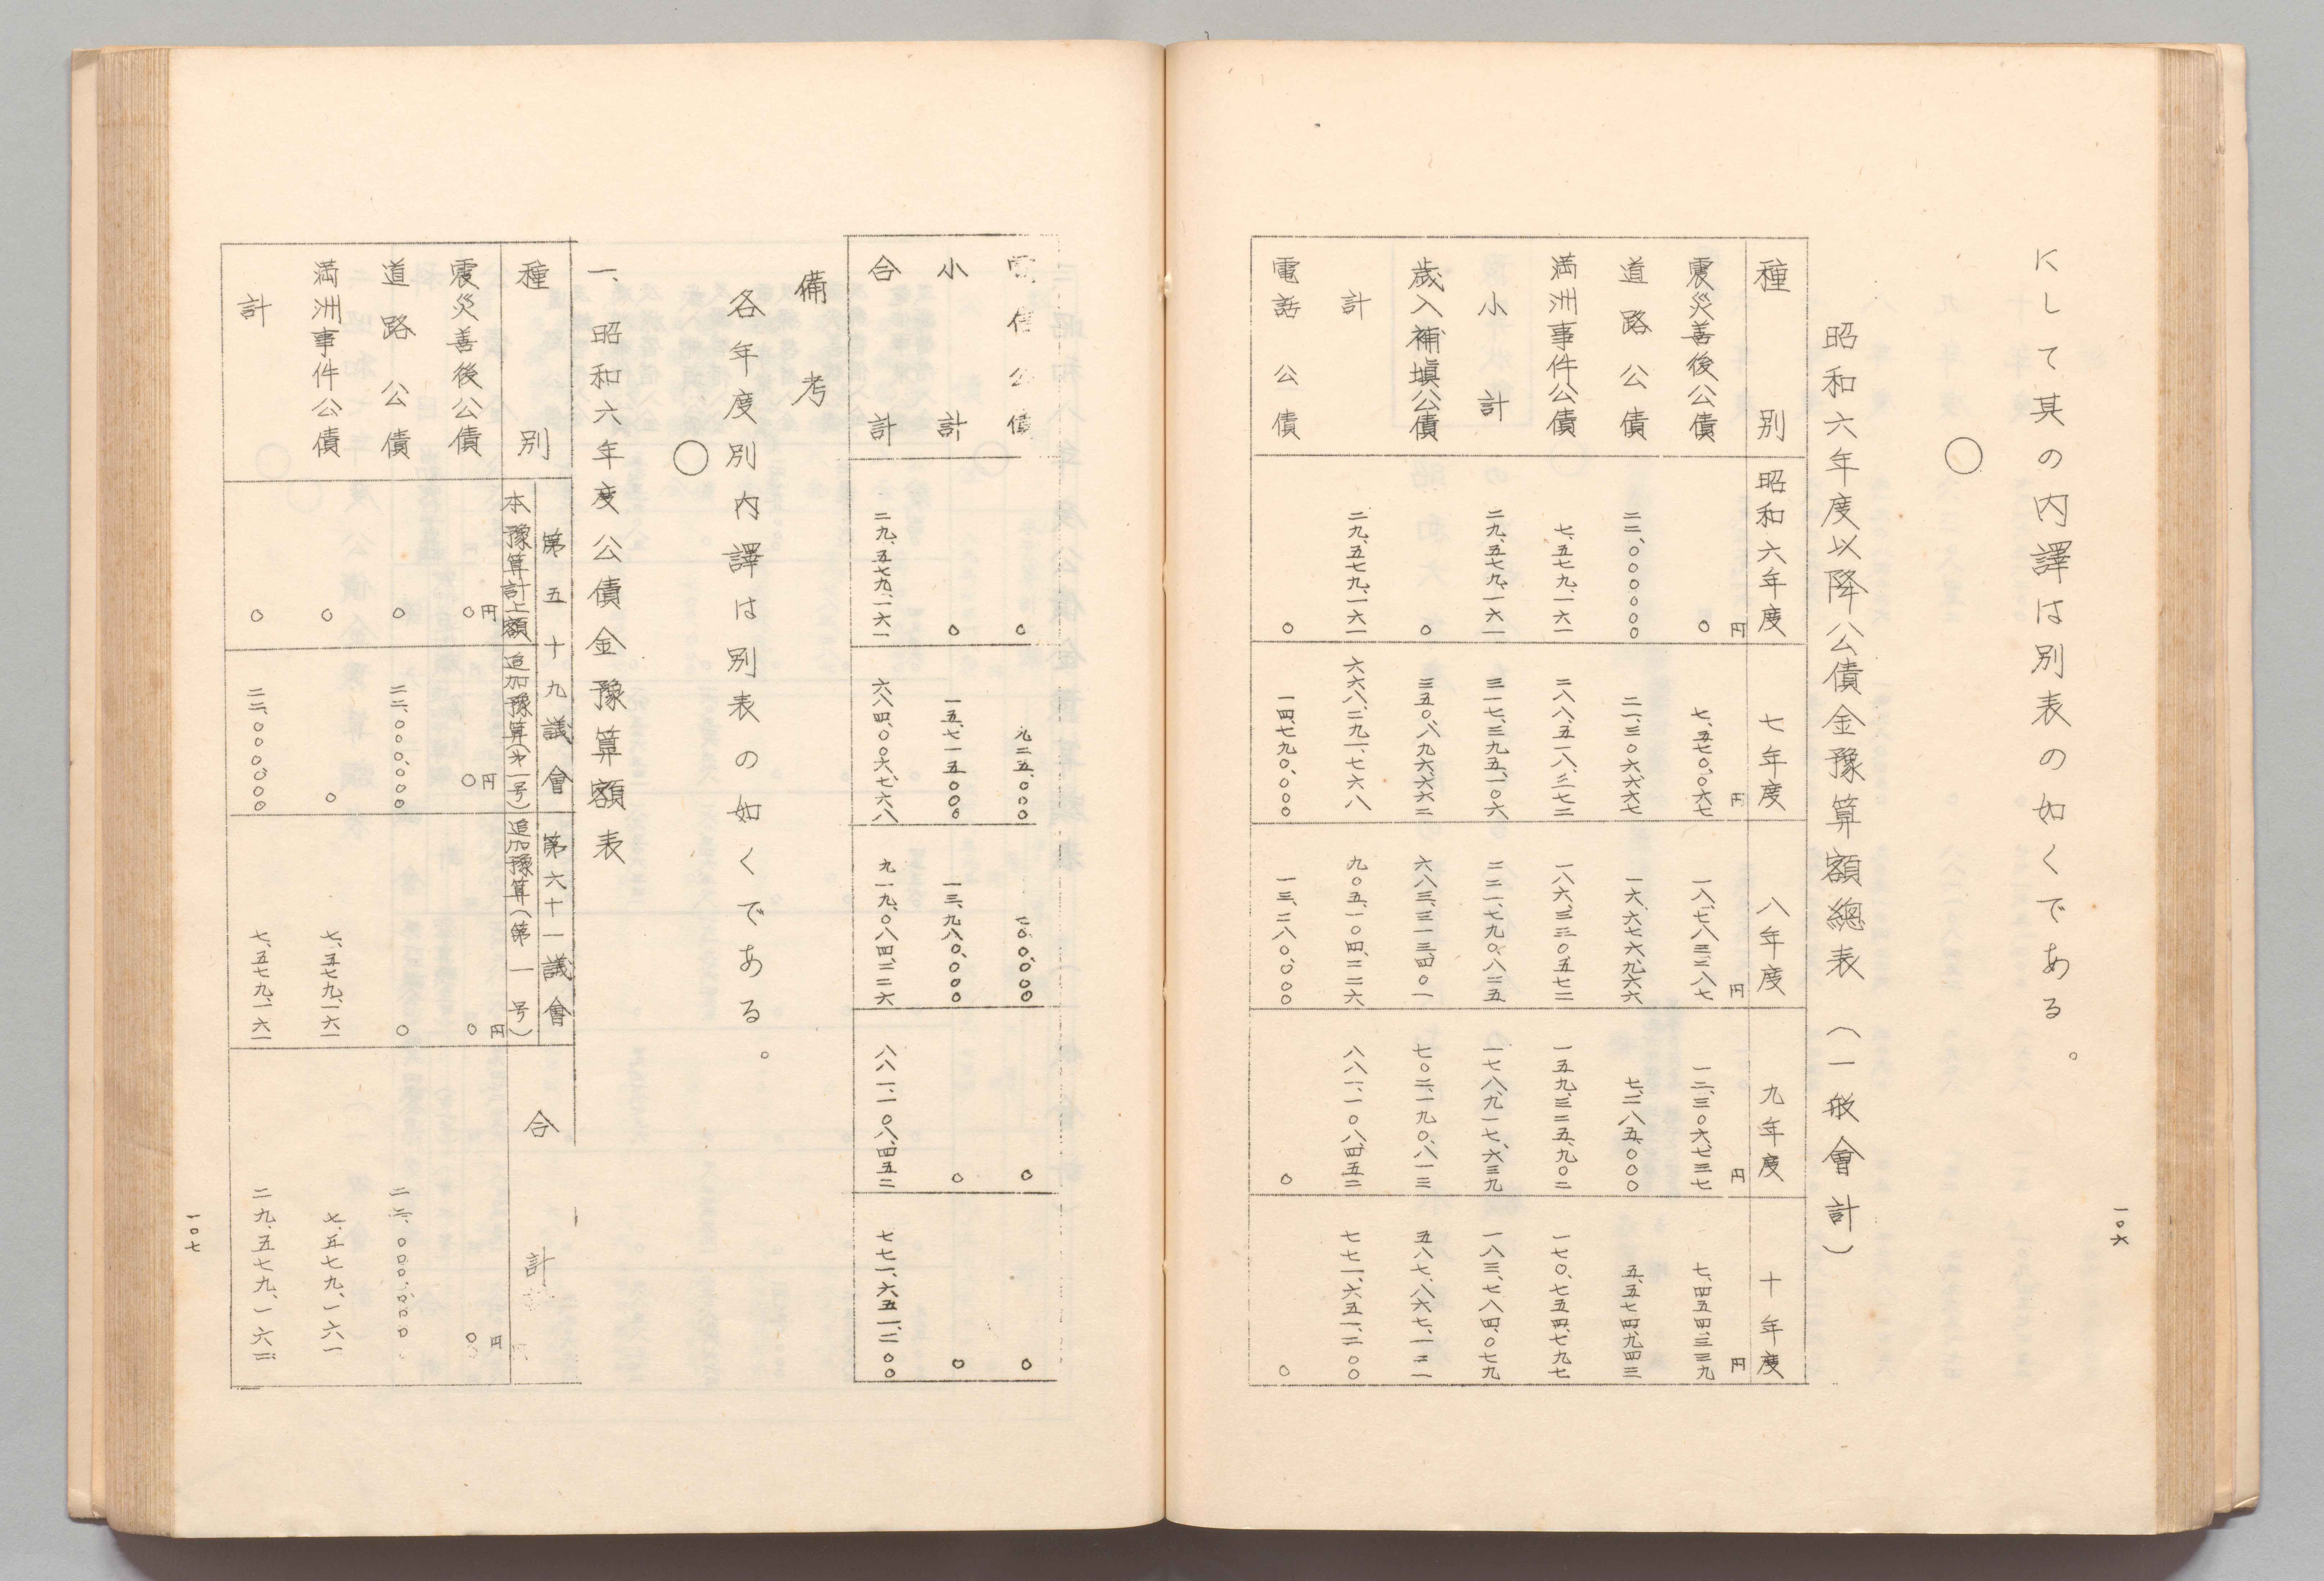 一〇六
にして其の内譯は別表の如くである。
〇
昭和六年度以降公債金豫算額總表 (一般會計)
種別 昭和六年度 七年度 八年度 九年度 十年度
震災善後公債 〇円 七、五七〇、〇六七円 一八、七八三、二八七円 一二、三〇六、七三七円 七、四五四、三三九円
道路公債 二二、〇〇〇〇〇〇 二一、三〇六、六六七 一六、六七六、九六六 七、二八五、〇〇〇 五、五七四、九四三
満洲事件公債 七、五七九、一六一 二八八、五一八、三七二 一八六、三三〇、五七二 一五九、三二五、九〇二 一七〇、七五四、七九七
小計 二九、五七九、一六一 三一七、三九五、一〇六 二二一、七九〇、八二五 一七八、九一七、六三九 一八三、七八四、〇七九
歳入補塡公債 〇 三五〇、八九六、六六二 六八三、三一三、四〇一 七〇二、一九〇、八一三 五八七、八六七、一二一
計 二九、五七九、一六一 六六八、二九一、七六八 九〇五、一〇四、二二六 八八一、一〇八、四五二 七七一、六五一、二〇〇
電話公債 〇 一四、七九〇、〇〇〇 一三、二八〇、〇〇〇 〇 〇
電信公債 〇 九二五、〇〇〇 〇 〇
小計 〇 一五、七一五、〇〇〇 一三、九八〇、〇〇〇 〇 〇
合計 二九、五七九、一六一 六八四、〇〇六、七六八 九一九、〇八四、二二六 八八一、一〇八、四五二 七七一、六五一、二〇〇
備考
各年度別内譯は別表の如くである。
〇
一、昭和六年度公債金豫算額表
種別 第五十九議會 第六十一議會 合計
本豫算計上額 追加豫算(才一号) 追加豫算(第一号)
震災善後公債 〇円 〇円 〇円 〇円
道路公債 〇 二二、〇〇〇、〇〇〇 〇 二二、〇〇〇、〇〇〇
満洲事件公債 〇 〇 七、五七九、一六一 七、五七九、一六一
計 〇 二二、〇〇〇、〇〇〇 七、五七九、一六一 二九、五七九、一六一
一〇七